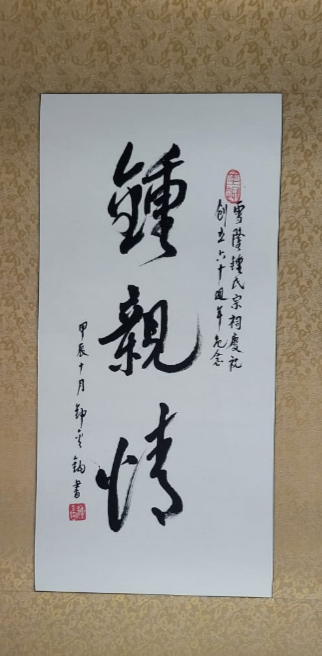 雪隆鍾氏宗祠慶祝
創立六十週年紀念
鍾親情
甲辰十月鍾
書